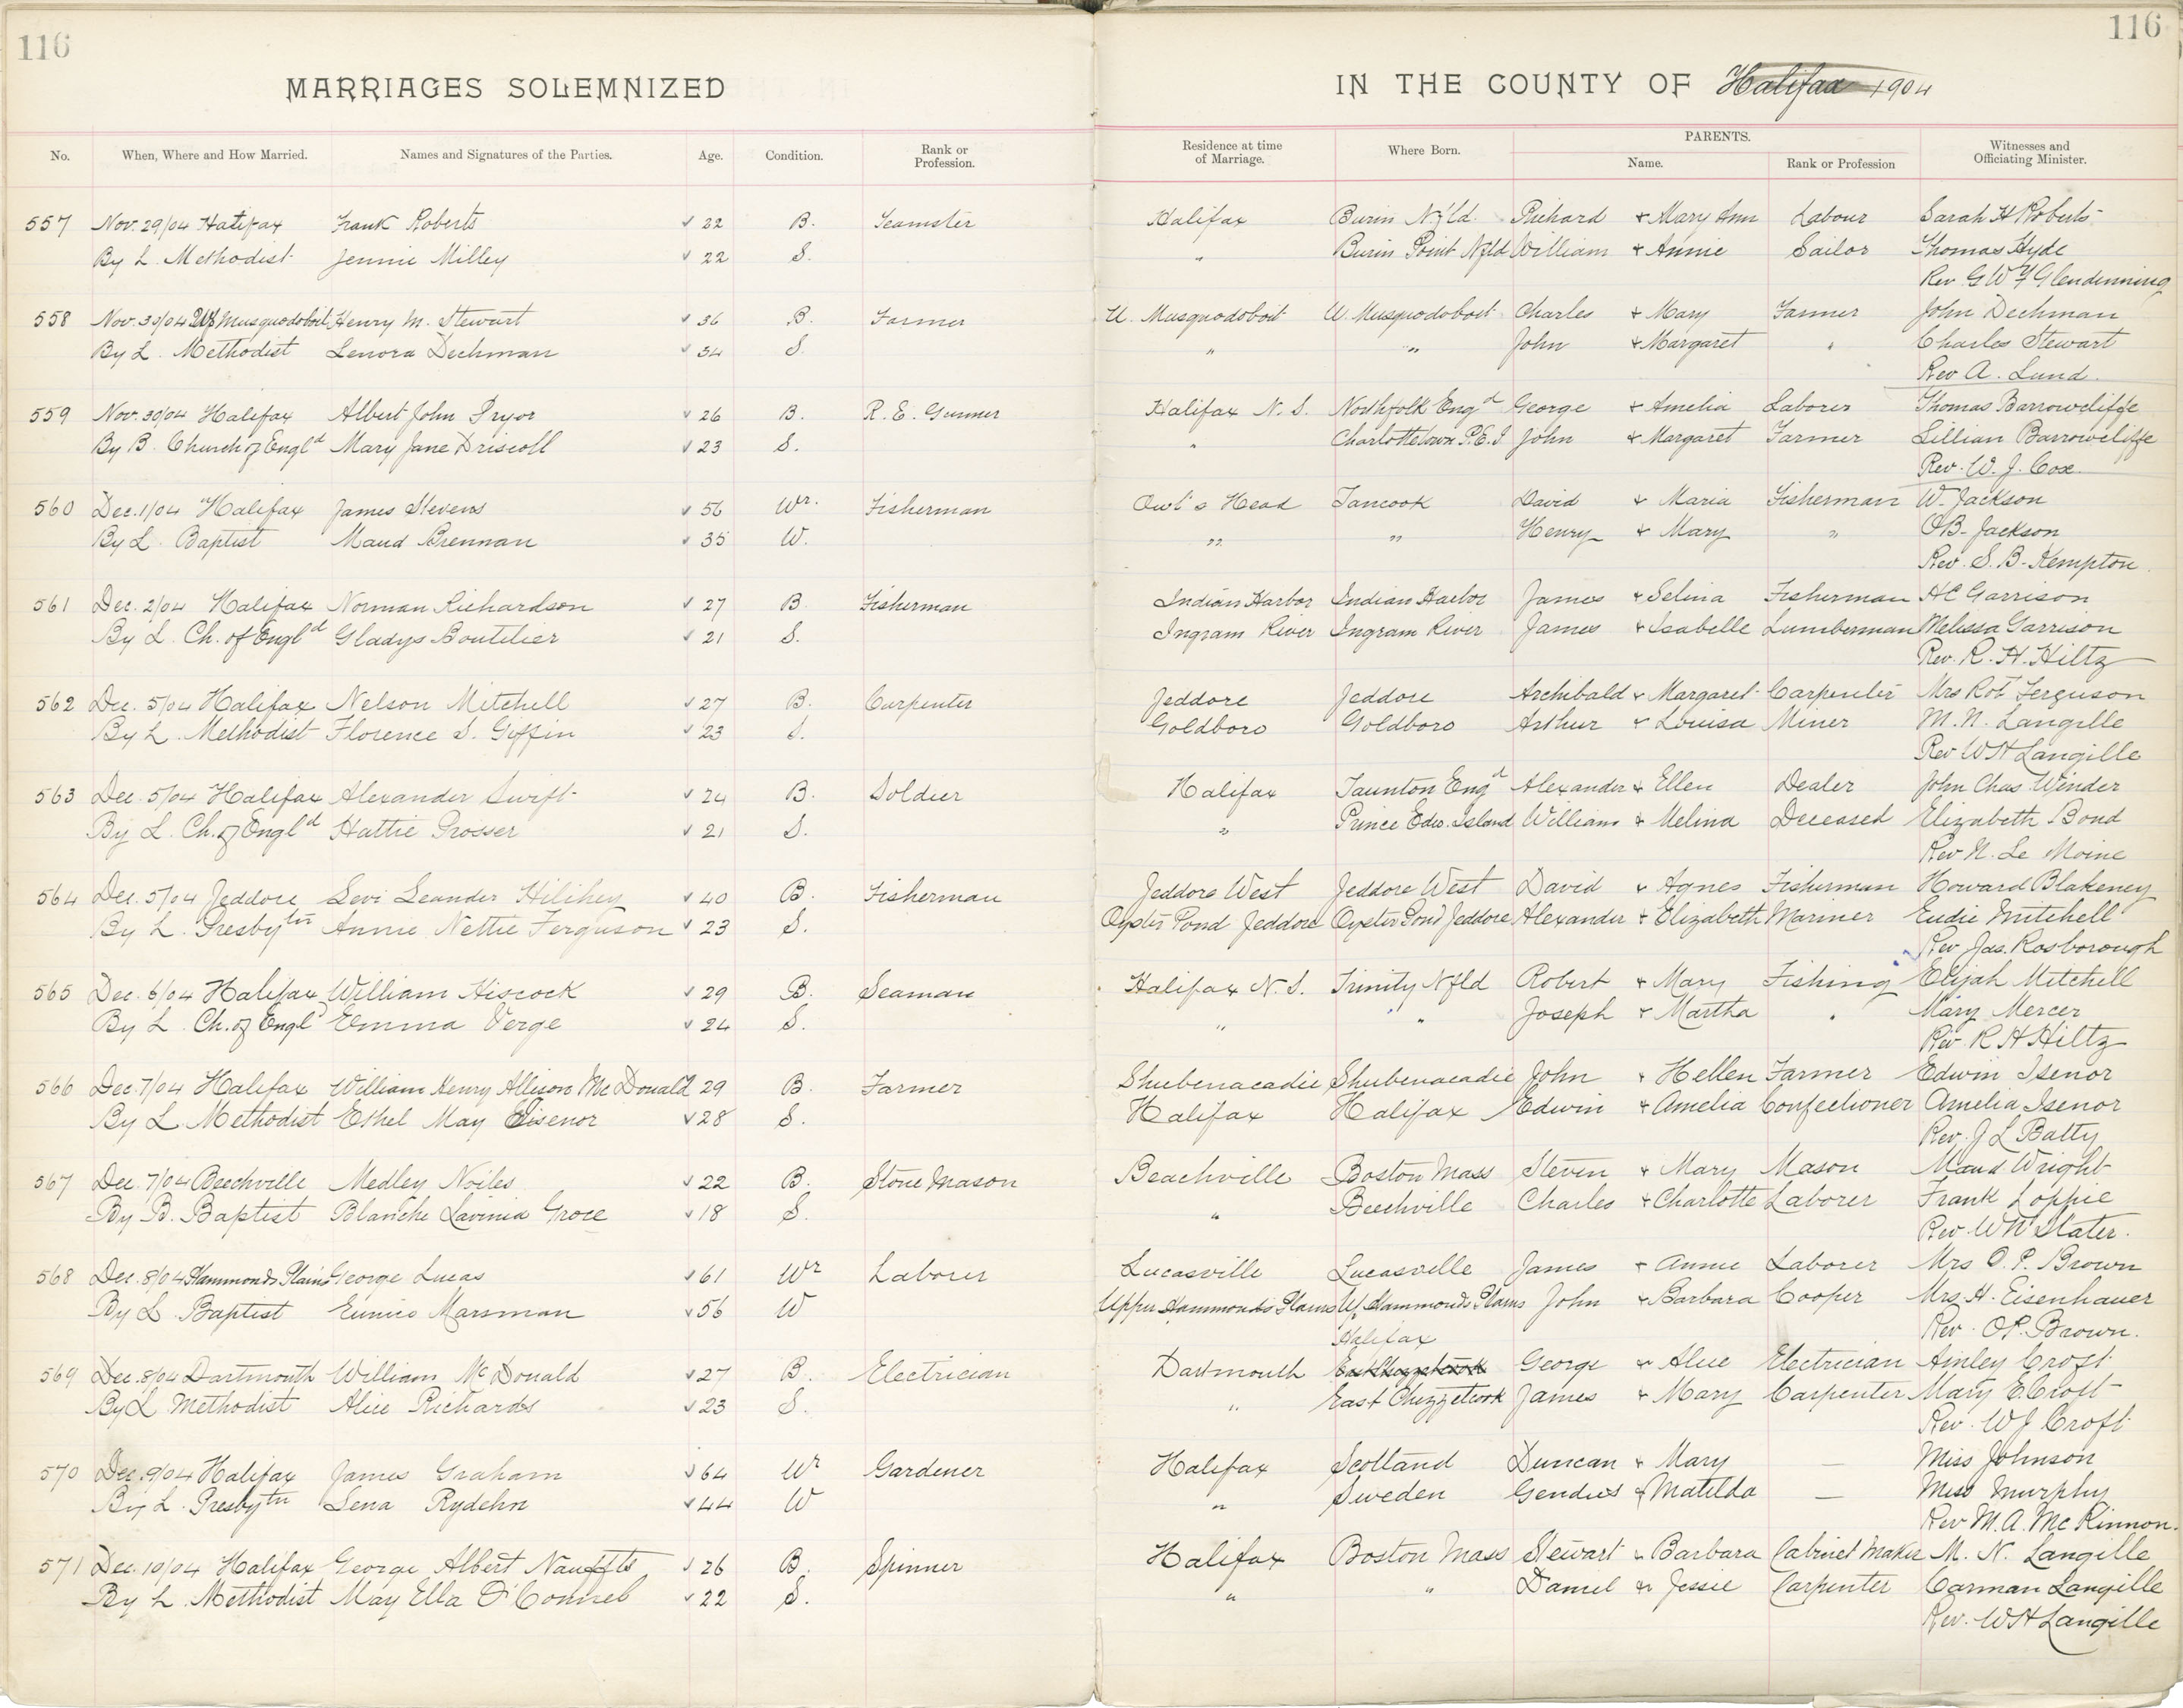 116
116
MARRIAGES SOLEMNIZED
IN THE COUNTY OF Halifax 1904
No. When, Where and How Married. Names and Signatures of the Parties. Age. Condition. Rank or Profession. Residence at time of Marriage. Where Born. PARENTS. Name. Rank or Profession Witnesses and Officiating Minister.
557 Nov. 29/04 Halifax Frank Roberts 22 B. Teamster Halifax Burin Nfld. Richard + Mary Ann Labour Sarah H Roberts
By L. Methodist Jennie Milley 22 S. " Burin Point Nfld William + Annie Sailor Thomas Hyde
Rev G W F Glendenning
558 Nov. 30/04 Up Musquodoboit Henry M. Stewart 36 B. Farmer U. Musquodoboit U. Musquodoboit Charles + Mary Farmer John Dechman
By L. Methodist Lenora Dechman 34 S. " " John + Margaret " Charles Stewart
Rev A. Lund
559 Nov. 30/04 Halifax Albert John Pryor 26 B. R. E. Gunner Halifax N. S. Northfolk Engd George + Amelia Laborer Thomas Barrowcliffe
By B. Church of Engld Mary Jane Driscoll 23 S. " Charlottetown P.E.I John + Margaret Farmer Lillian Barrowcliffe
Rev. W. J. Cox
560 Dec. 1/04 Halifax James Stevens 56 Wr. Fisherman Owl's Head Tancook David + Maria Fisherman W. Jackson
By L. Baptist Maud Brennan 35 W. " " Henry + Mary " O B. Jackson
Rev. S. B. Kempton
561 Dec. 2/04 Halifax Norman Richardson 27 B. Fisherman Indian Harbor Indian Harbor James + Selina Fisherman H C Garrison
By L. Ch. of Engld Gladys Boutilier 21 S. Ingram River Ingram River James + Isabelle Lumberman Melissa Garrison
Rev. R. H. Hiltz
562 Dec. 5/04 Halifax Nelson Mitchell 27 B. Carpenter Jeddore Jeddore Archibald + Margaret Carpenter Mrs Rot Ferguson
By L. Methodist Florence S. Giffin 23 S. Goldboro Goldboro Arthur + Louisa Miner M. N. Langille
Rev W H Langille
563 Dec. 5/04 Halifax Alexander Swift 24 B. Soldier Halifax Taunton Engd Alexander + Ellen Dealer John Chas Winder
By L. Ch. of Engld Hattie Prosser 21 S. " Prince Edw. Island William + Melina Deceased Elizabeth Bond
Rev N. Le Moine
564 Dec. 5/04 Jeddore Levi Leander Hilihey 40 B. Fisherman Jeddore West Jeddore West David + Agnes Fisherman Howard Blakeney
By L. Presbytn Annie Nettie Ferguson 23 S. Oyster Pond Jeddore Oyster Pond Jeddore Alexander + Elizabeth Mariner Eudie Mitchell
Rev Jas. Rosborough
565 Dec. 6/04 Halifax William Hiscock 29 B. Seaman Halifax N. S. Trinity Nfld Robert + Mary Fishing Elijah Mitchell
By L Ch. of Engld Emma Verge 24 S. " " Joseph + Martha " Mary Mercer
Rev R H Hiltz
566 Dec. 7/04 Halifax William Henry Allison McDonald 29 B. Farmer Shubenacadie Shubenacadie John + Hellen Farmer Edwin Isenor
By L. Methodist Ethel May Eisenor 28 S. Halifax Halifax Edwin + Amelia Confectioner Amelia Isenor
Rev. J L Batty
567 Dec. 7/04 Beechville Medley Noiles 22 B. Stone Mason Beachville Boston Mass Steven + Mary Mason Maud Wright
By B. Baptist Blanche Lavinia Grose 18 S. " Beechville Charles + Charlotte Laborer Frank Loppie
Rev. W N Slater.
568 Dec. 8/04 Hammonds Plains George Lucas 61 Wr Laborer Lucasville Lucasville James + Annie Laborer Mrs O. P. Brown
By L. Baptist Eunice Marsman 56 W Upper Hammonds Plains Up. Hammonds Plains John + Barbara Cooper Mrs. H. Eisenhauer
Rev. O P. Brown.
Halifax
569 Dec. 8/04 Dartmouth William McDonald 27 B. Electrician Dartmouth East Chezzetcook George + Alice Electrician Ainley Croft
By L Methodist Alice Richards 23 S. " East Chezzetcook James + Mary Carpenter Mary E. Croft
Rev. W J Croft
570 Dec. 9/04 Halifax James Graham 64 Wr Gardener Halifax Scotland Duncan + Mary — Miss Johnson
By L. Presbytn Lena Rydehn 44 W " Sweden + Matilda — Miss Murphy
Rev M. A. McKinnon.
571 Dec. 10/04 Halifax George Albert Nauffts 26 B. Spinner Halifax Boston Mass Stewart + Barbara Cabinet Maker M. N. Langille
By L. Methodist May Ella O'Connel 22 S. " " Daniel + Jessie Carpenter Carman Langille
Rev. W H Langille